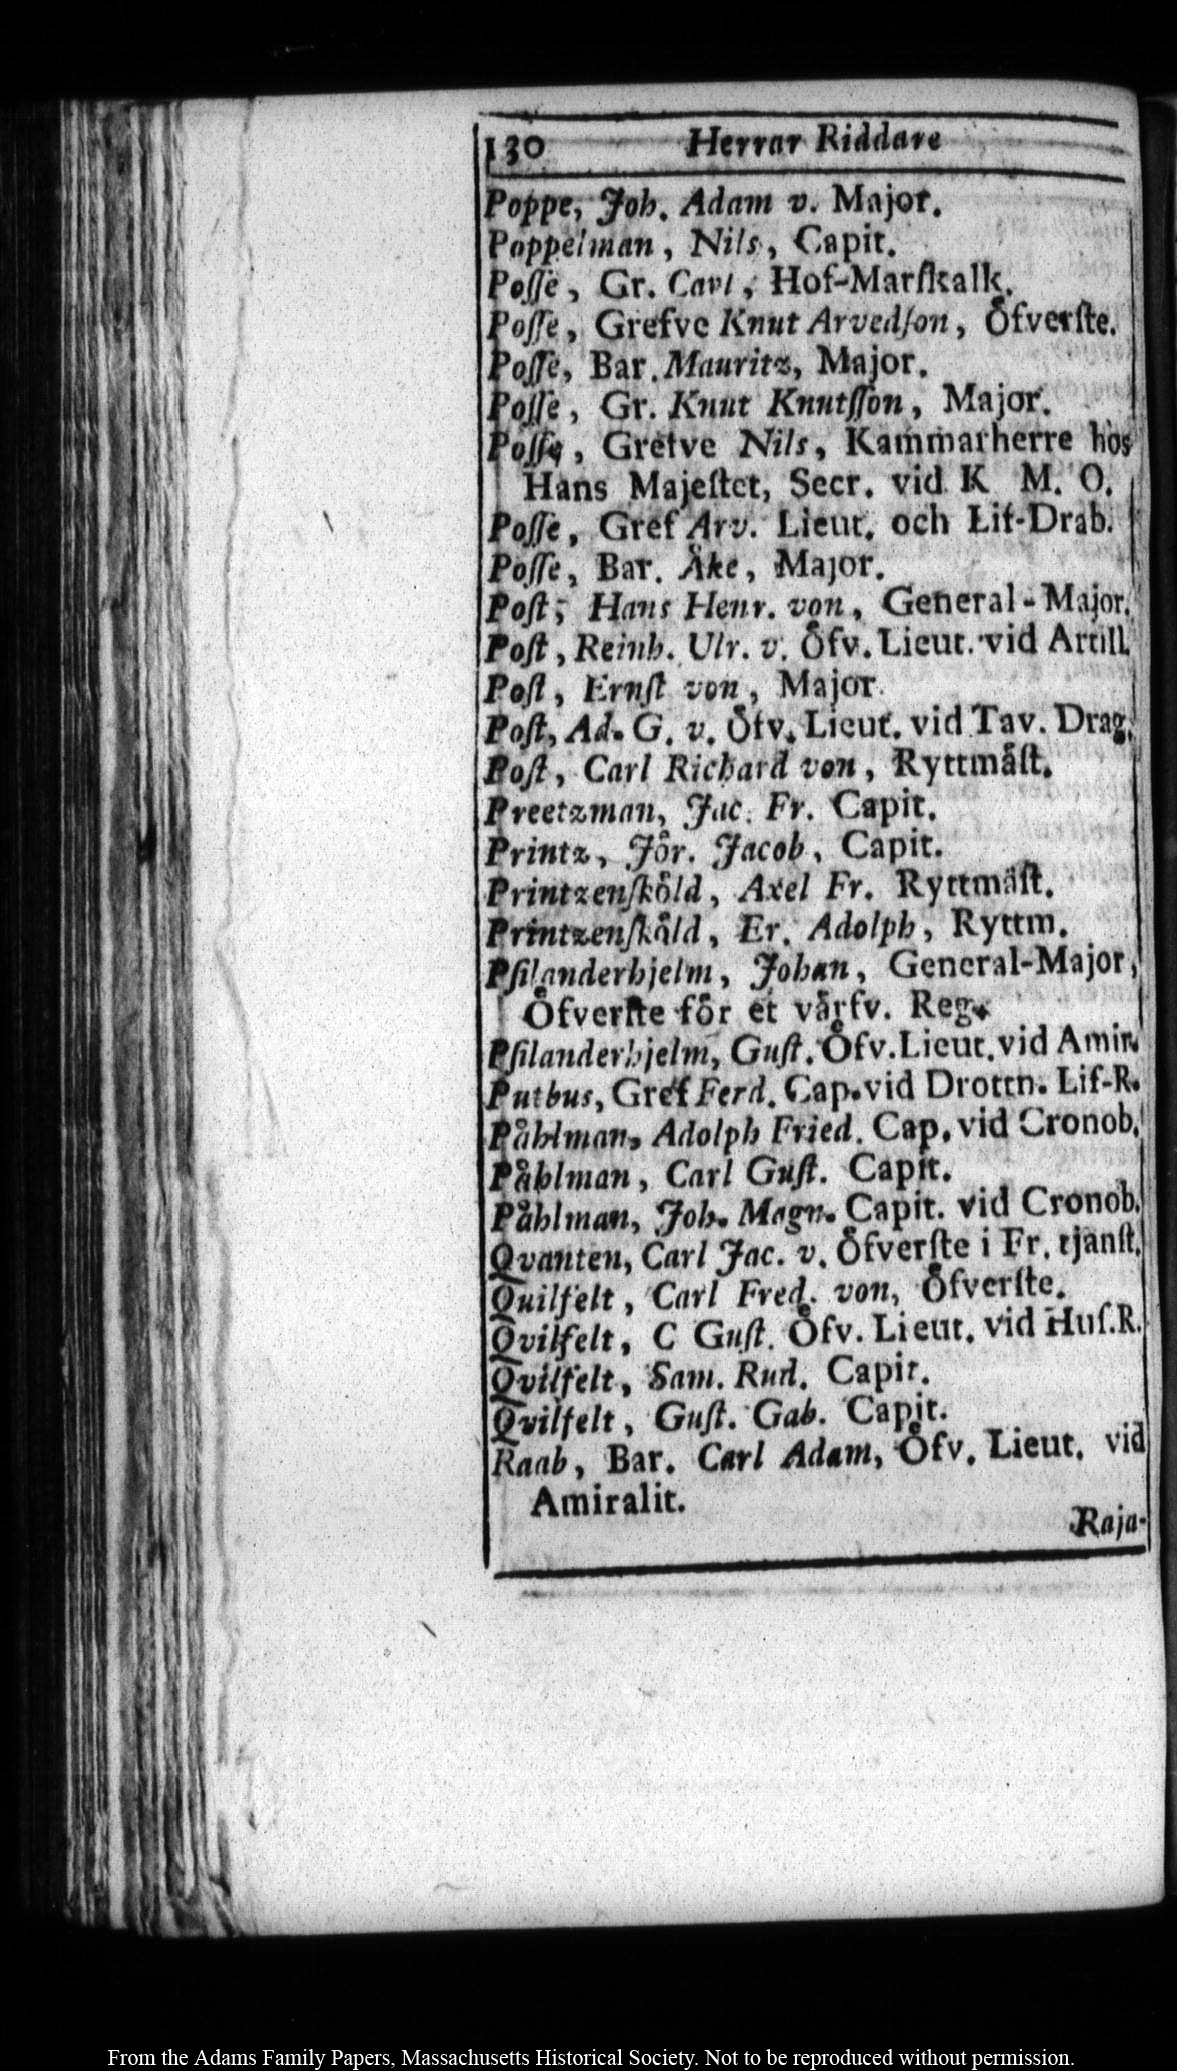 130 Herrar Riddare
Poppe, Joh. Adam v. Major.
Poppelman, Nils, Capit.
Poſſe, Gr. Carl, Hof-Marſkalk.
Poſſe, Grefve Knut Arvedſon, Öfverſte.
Poſſe, Bar. Mauritz, Major.
Poſſe, Gr. Knut Knutſſon, Major.
Poſſe, Grefve Nils, Kammarherre hos
Hans Majeſtet, Secr. vid K M. O.
Poſſe, Gref Arv. Lieut. och Lif-Drab.
Poſſe, Bar. Åke, Major.
Poſt, Hans Henr. von, General-Major.
Poſt, Reinh. Ulr. v. Öfv. Lieut. vid Artill.
Poſt, Ernſt von, Major.
Poſt, Ad. G. v. Öfv. Lieut. vid Tav. Drag.
Poſt, Carl Richard von, Ryttmäſt.
Preetzman, Jac. Fr. Capit.
Printz, Jör. Jacob, Capit.
Printzenſköld, Axel Fr. Ryttmäſt.
Printzenſköld, Er. Adolph, Ryttm.
Pſilanderhjelm, Johan, General-Major,
Öfverſte för et värfv. Reg.
Pſilanderhjelm, Guſt. Öfv. Lieut. vid Amir.
Putbus, Gref Ferd. Cap. vid Drottn. Lif-R.
Påhlman, Adolph Fried. Cap. vid Cronob.
Påhlman, Carl Guſt. Capit.
Påhlman, Joh. Magn. Capit. vid Cronob.
Qvanten, Carl Jac. v. Öfverſte i Fr. tjänſt.
Quilfelt, Carl Fred. von, Öfverſte.
Qvilfelt, C Guſt. Öfv. Lieut. vid Huſ.R.
Qvilfelt, Sam. Rud. Capit.
Qvilfelt, Guſt. Gab. Capit.
Raab, Bar. Carl Adam, Öfv. Lieut. vid
Amiralit.
Raja-
From the Adams Family Papers, Massachusetts Historical Society. Not to be reproduced without permission.